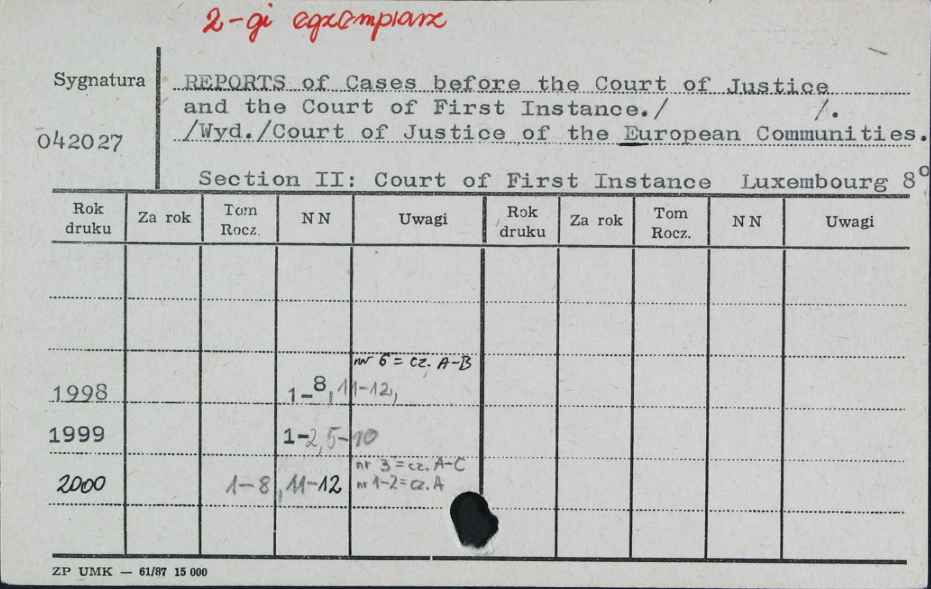 2-gi egzemplarz
Sygnatura
042027
REPORTS of Cases before the Court of Justice
and the Court of First Instance./ /.
/Wyd./Court of Justice of the European Communities.
Section II: Court of First Instance Luxembourg 8°
Rok druku Za rok Tom Rocz. NN Uwagi Rok druku Za rok Tom Rocz. NN Uwagi
nr 6 = cz. A-B
1998 1-8, 11-12,
1999 1-2, 5-10
nr 3 = cz. A-C
2000 1-8, 11-12 nr 1-2 = cz. A
ZP UMK — 61/87 15 000